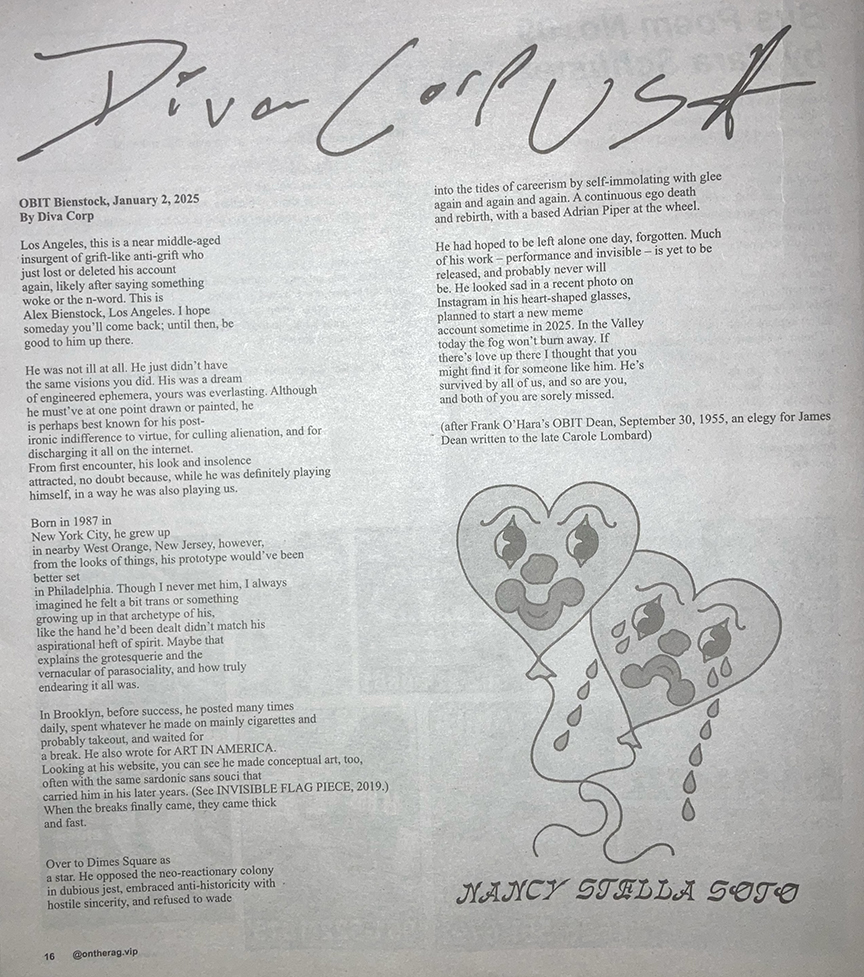 Diva Corp USA
OBIT Bienstock, January 2, 2025
By Diva Corp
Los Angeles, this is a near middle-aged
insurgent of grift-like anti-grift who
just lost or deleted his account
again, likely after saying something
woke or the n-word. This is
Alex Bienstock, Los Angeles. I hope
someday you'll come back; until then, be
good to him up there.
He was not ill at all. He just didn't have
the same visions you did. His was a dream
of engineered ephemera, yours was everlasting. Although
he must've at one point drawn or painted, he
is perhaps best known for his post-
ironic indifference to virtue, for culling alienation, and for
discharging it all on the internet.
From first encounter, his look and insolence
attracted, no doubt because, while he was definitely playing
himself, in a way he was also playing us.
Born in 1987 in
New York City, he grew up
in nearby West Orange, New Jersey, however,
from the looks of things, his prototype would've been
better set
in Philadelphia. Though I never met him, I always
imagined he felt a bit trans or something
growing up in that archetype of his,
like the hand he'd been dealt didn't match his
aspirational heft of spirit. Maybe that
explains the grotesquerie and the
vernacular of parasociality, and how truly
endearing it all was.
In Brooklyn, before success, he posted many times
daily, spent whatever he made on mainly cigarettes and
probably takeout, and waited for
a break. He also wrote for ART IN AMERICA.
Looking at his website, you can see he made conceptual art, too,
often with the same sardonic sans souci that
carried him in his later years. (See INVISIBLE FLAG PIECE, 2019.)
When the breaks finally came, they came thick
and fast.
Over to Dimes Square as
a star. He opposed the neo-reactionary colony
in dubious jest, embraced anti-historicity with
hostile sincerity, and refused to wade
into the tides of careerism by self-immolating with glee
again and again and again. A continuous ego death
and rebirth, with a based Adrian Piper at the wheel.
He had hoped to be left alone one day, forgotten. Much
of his work – performance and invisible – is yet to be
released, and probably never will
be. He looked sad in a recent photo on
Instagram in his heart-shaped glasses,
planned to start a new meme
account sometime in 2025. In the Valley
today the fog won't burn away. If
there's love up there I thought that you
might find it for someone like him. He's
survived by all of us, and so are you,
and both of you are sorely missed.
(after Frank O'Hara's OBIT Dean, September 30, 1955, an elegy for James
Dean written to the late Carole Lombard)
NANCY STELLA SOTO
16 @ontherag.vip